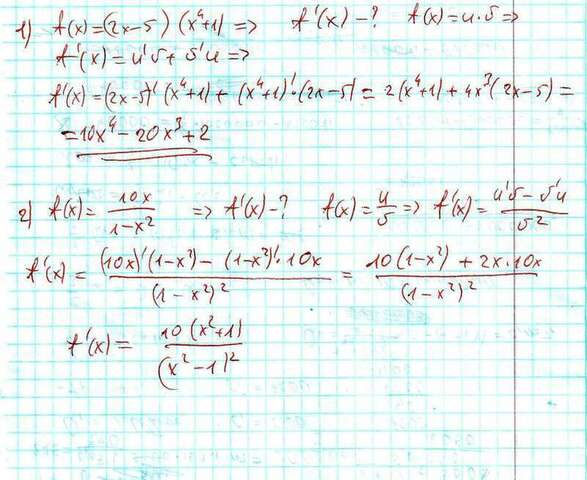 1) f(x)=(2x-5)(x⁴+1) => f'(x) -? f(x)=u·v =>
f'(x)=u'v+v'u =>
f'(x)=(2x-5)'(x⁴+1)+(x⁴+1)'·(2x-5)=2(x⁴+1)+4x³(2x-5)=
=10x⁴-20x³+2
2) f(x)=10x/(1-x²) => f'(x)-? f(x)=u/v => f'(x)=(u'v-v'u)/v²
f'(x)=((10x)'(1-x²)-(1-x²)'·10x)/(1-x²)²=(10(1-x²)+2x·10x)/(1-x²)²
f'(x)=10(x²+1)/(x²-1)²